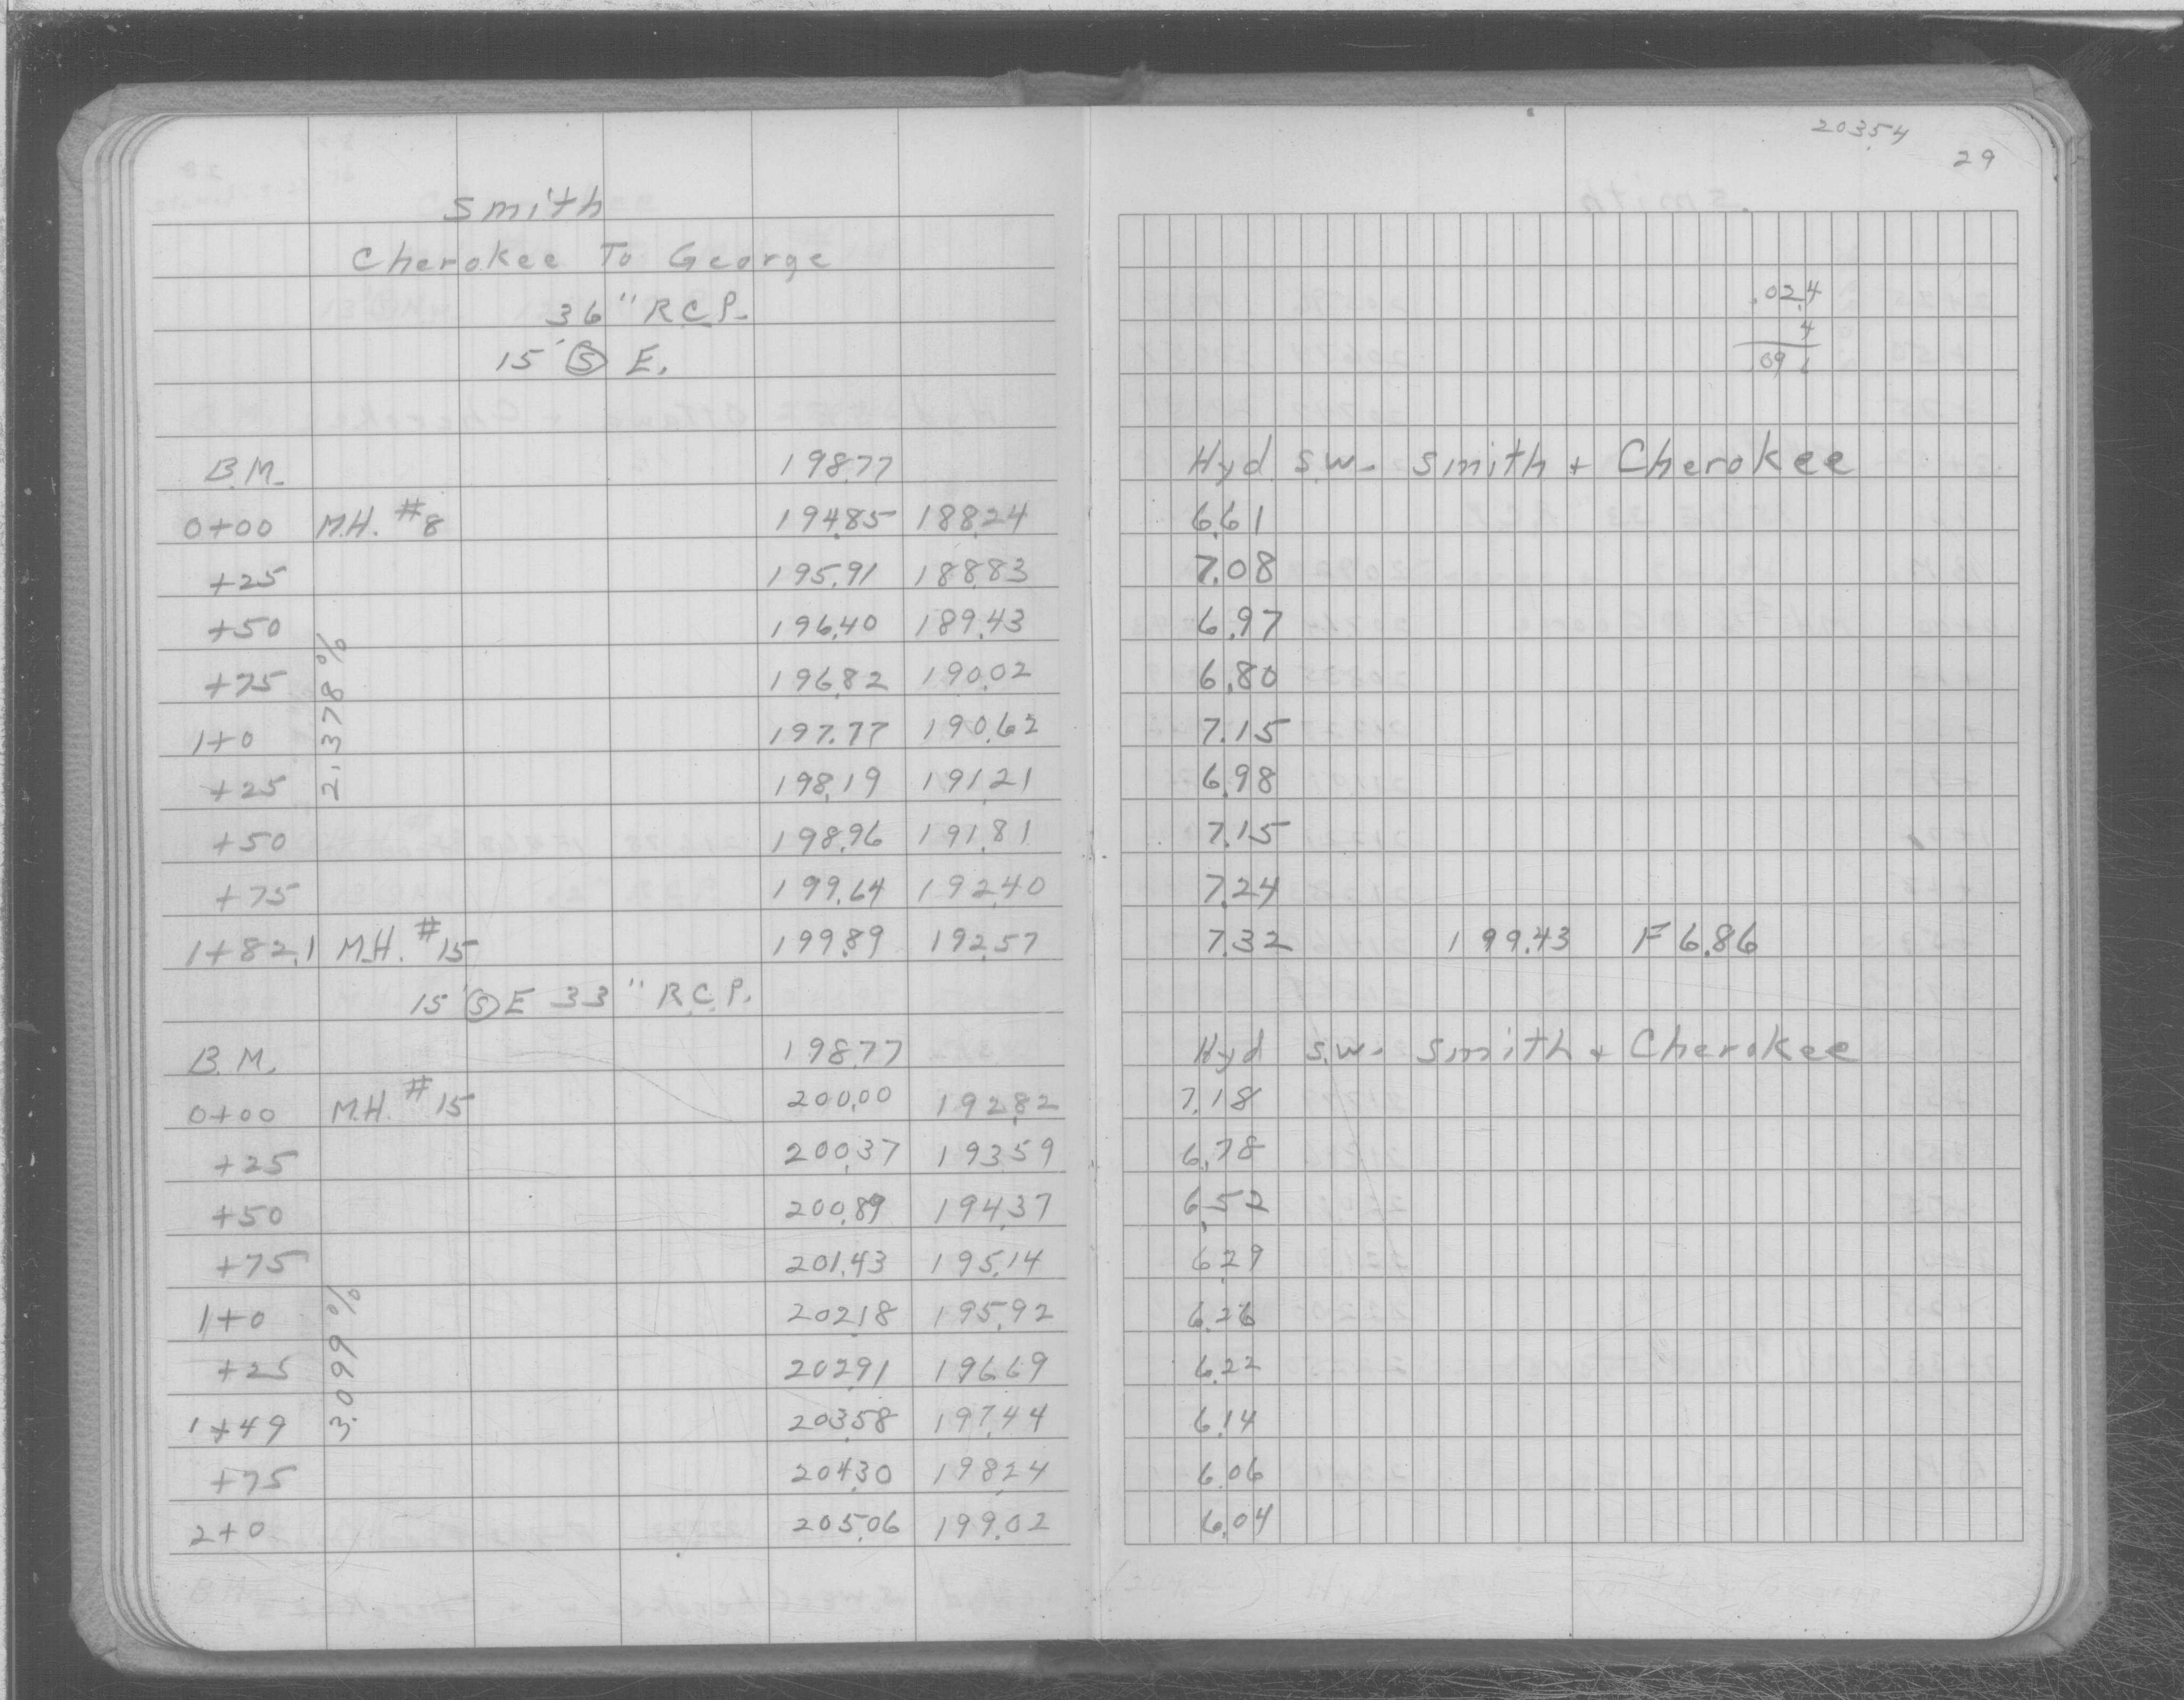 20354
29
Smith
Cherokee To George
36" R.C.P.
15' Ⓢ E.
.024
4
.096
B.M. 198.77 Hyd S.W. Smith + Cherokee
0+00 M.H. #8 194.85 188.24 6.61
+25 195.91 188.83 7.08
+50 196.40 189.43 6.97
+75 196.82 190.02 6.80
1+0 197.77 190.62 7.15
2.378%
+25 198.19 191.21 6.98
+50 198.96 191.81 7.15
+75 199.64 192.40 7.24
1+82.1 M.H. #15 199.89 192.57 7.32 199.43 F 6.86
15' Ⓢ E 33" R.C.P.
B.M. 198.77 Hyd S.W. Smith + Cherokee
0+00 M.H. #15 200.00 192.82 7.18
+25 200.37 193.59 6.78
+50 200.89 194.37 6.52
+75 201.43 195.14 6.29
1+0 202.18 195.92 6.26
3.099%
+25 202.91 196.69 6.22
1+49 203.58 197.44 6.14
+75 204.30 198.24 6.06
2+0 205.06 199.02 6.04